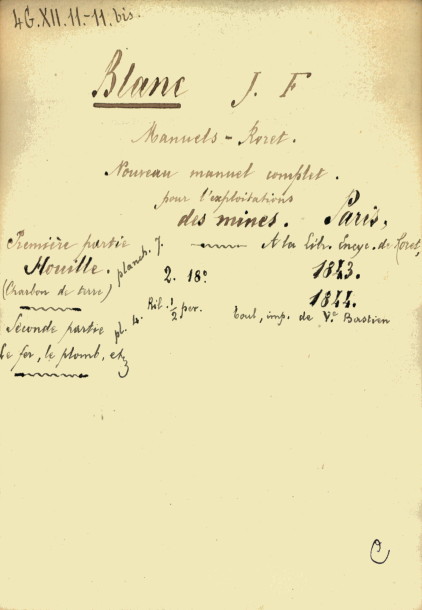 4G.XII.11-11 bis.
Blanc J. F
Manuels-Roret.
Nouveau manuel complet.
pour l'exploitations
des mines. Paris,
Première partie A la Lib. Encyc. de Roret,
Houille. planch. 7. 1843.
(Charbon de terre) 2. 18° 1844.
Seconde partie pl. 4. Ril. 1/2 per. Toul, imp. de Ve Bastien
Le fer, le plomb, etz